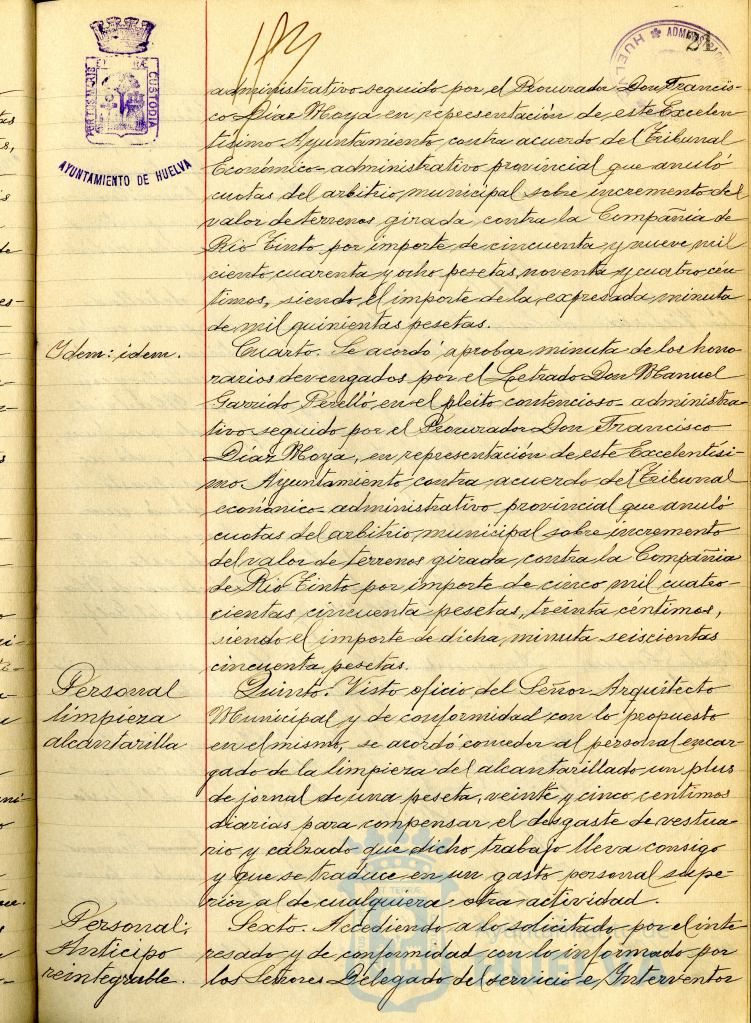 113
21
ADMINISTRACION
HUELVA
PORTUS MARIS ET TERRÆ CUSTODIA
AYUNTAMIENTO DE HUELVA
administrativo seguido por el Procurador Don Francis-
co Díaz Moya en representación de este Excelen-
tísimo Ayuntamiento, contra acuerdo del Tribunal
Económico-administrativo provincial que anuló
cuotas del arbitrio municipal sobre incremento del
valor de terrenos girada contra la Compañía de
Rio Tinto por importe de cincuenta y nueve mil
ciento cuarenta y ocho pesetas, noventa y cuatro cén-
timos, siendo el importe de la expresada minuta
de mil quinientas pesetas.
Idem: idem.
Cuarto. Se acordó aprobar minuta de los hono-
rarios devengados por el Letrado Don Manuel
Garrido Perelló, en el pleito contencioso-administra-
tivo seguido por el Procurador Don Francisco
Díaz Moya, en representación de este Excelentísi-
mo Ayuntamiento contra acuerdo del Tribunal
económico-administrativo provincial que anuló
cuotas del arbitrio municipal sobre incremento
del valor de terrenos girada contra la Compañía
de Rio Tinto por importe de cinco mil cuatro-
cientas cincuenta pesetas, treinta céntimos,
siendo el importe de dicha minuta seiscientas
cincuenta pesetas.
Personal
limpieza
alcantarilla
Quinto. Visto oficio del Señor Arquitecto
Municipal y de conformidad con lo propuesto
en el mismo, se acordó conceder al personal encar-
gado de la limpieza del alcantarillado un plus
de jornal de una peseta, veinte y cinco centimos
diarias para compensar el desgaste de vestua-
rio y calzado que dicho trabajo lleva consigo
y que se traduce en un gasto personal supe-
rior al de cualquiera otra actividad.
Personal.
Anticipo
reintegrable.
Sexto. Accediendo a lo solicitado por el inte-
resado y de conformidad con lo informado por
los Señores Delegado del servicio e Interventor
Ayuntamiento de
HUELVA